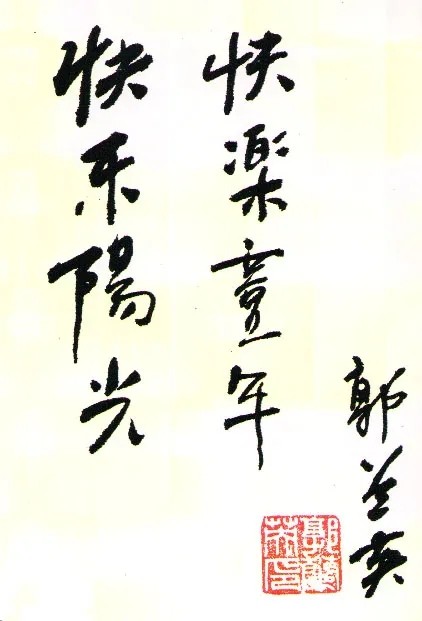 快乐陽光
快樂童年
郭兰英
郭蘭英印